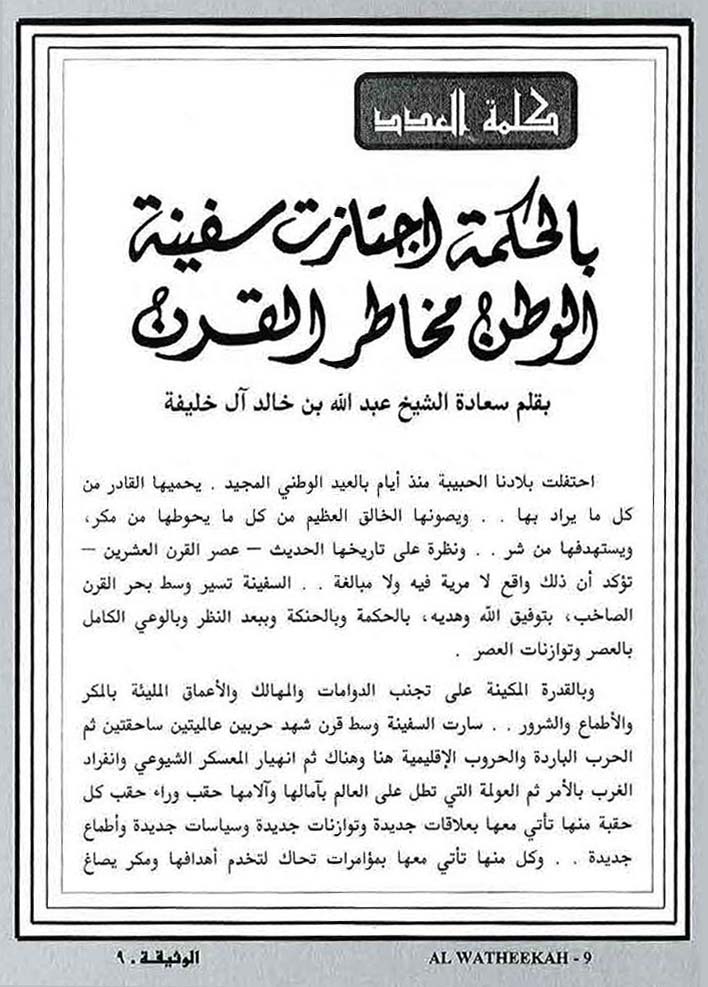 كلمة العدد
بالحكمة اجتازت سفينة
الوطن مخاطر القرن
بقلم سعادة الشيخ عبد الله بن خالد آل خليفة
احتفلت بلادنا الحبيبة منذ أيام بالعيد الوطني المجيد . يحميها القادر من
كل ما يراد بها . . ويصونها الخالق العظيم من كل ما يحوطها من مكر،
ويستهدفها من شر . . ونظرة على تاريخها الحديث – عصر القرن العشرين –
تؤكد أن ذلك واقع لا مرية فيه ولا مبالغة . . السفينة تسير وسط بحر القرن
الصاخب، بتوفيق الله وهديه، بالحكمة وبالحنكة وببعد النظر وبالوعي الكامل
بالعصر وتوازنات العصر .
وبالقدرة المكينة على تجنب الدوامات والمهالك والأعماق المليئة بالمكر
والأطماع والشرور . . سارت السفينة وسط قرن شهد حربين عالميتين ساحقتين ثم
الحرب الباردة والحروب الإقليمية هنا وهناك ثم انهيار المعسكر الشيوعي وانفراد
الغرب بالأمر ثم العولمة التي تطل على العالم بآمالها وآلامها حقب وراء حقب كل
حقبة منها تأتي معها بعلاقات جديدة وتوازنات جديدة وسياسات جديدة وأطماع
جديدة . . وكل منها تأتي معها بمؤامرات تحاك لتخدم أهدافها ومكر يصاغ
الوثيقة . ٩
AL WATHEEKAH - 9